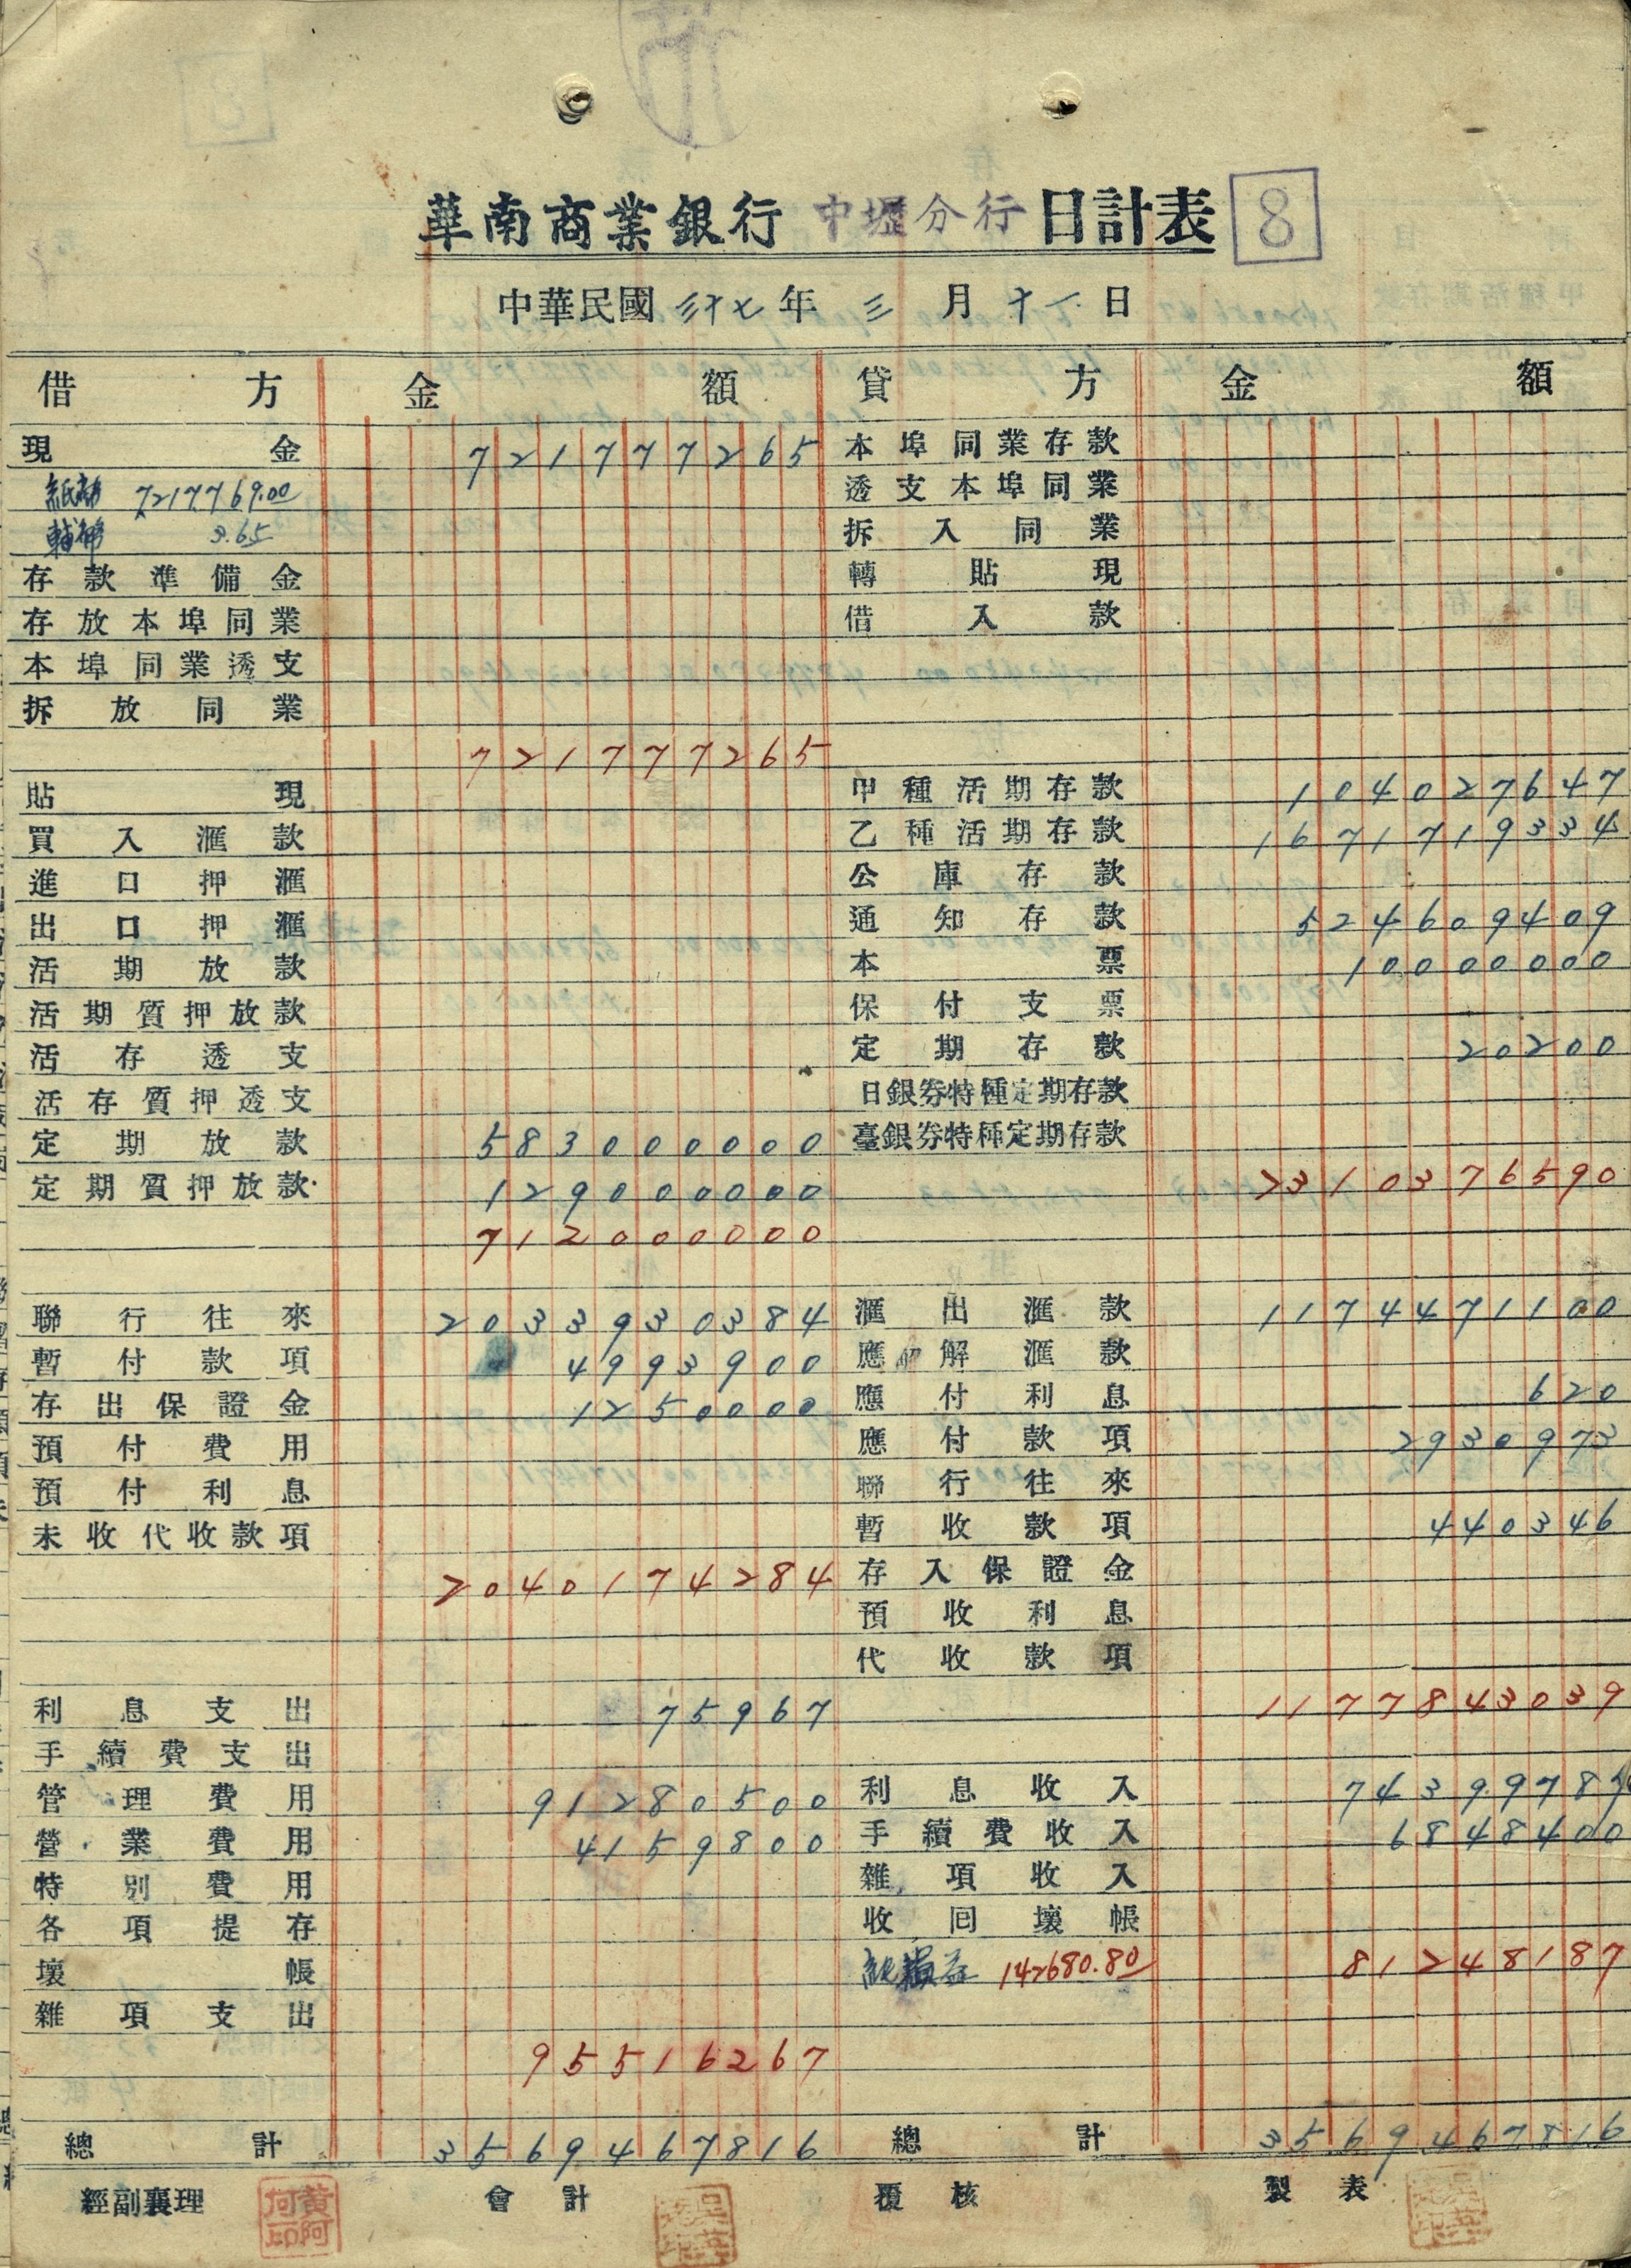 華南商業銀行 中壢分行 日計表 8
中華民國 三十七 年 三 月 十一 日
借方 金額 貸方 金額
現金 721777265 本埠同業存款
紙幣 7,217,769.00 透支本埠同業
輔幣 3.65 拆入同業
存款準備金 轉貼現
存放本埠同業 借入款
本埠同業透支
拆放同業
721777265
貼現 甲種活期存款 104027647
買入滙款 乙種活期存款 1671719334
進口押滙 公庫存款
出口押滙 通知存款 524609409
活期放款 本票 10000000
活期質押放款 保付支票
活存透支 定期存款 20200
活存質押透支 日銀券特種定期存款
定期放款 583000000 臺銀券特種定期存款
定期質押放款 129000000 2310376590
712000000
聯行往來 2033930384 滙出滙款 1174471100
暫付款項 4993900 應解滙款
存出保證金 1250000 應付利息 620
預付費用 應付款項 2930973
預付利息 聯行往來
未收代收款項 暫收款項 440346
2040174284 存入保證金
預收利息
代收款項
利息支出 75967 1177843039
手續費支出
管理費用 91280500 利息收入 74399787
營業費用 4159800 手續費收入 6848400
特別費用 雜項收入
各項提存 收回壞帳
壞帳 純損益 142680.80 81248187
雜項支出
95516267
總計 3569467816 總計 3569467816
經副襄理 會計 覆核 製表
黃阿何印